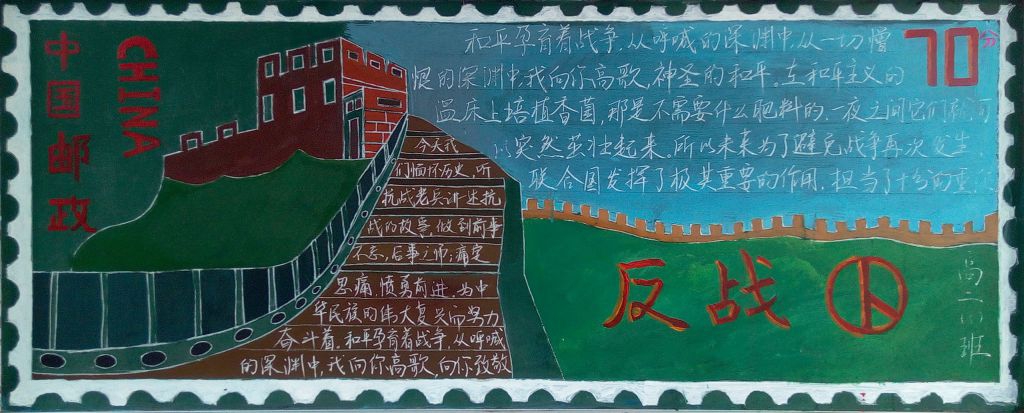 中国邮政
CHINA
和平孕育着战争,从呼喊的深渊中,从一切憎
恨的深渊中,我向你高歌,神圣的和平。在和平主义的
温床上培植香菌,那是不需要什么肥料的,一夜之间它们就可
以突然茁壮起来。所以未来为了避免战争再次发生
联合国发挥了极其重要的作用,担当了十分的重
70分
今天我
们缅怀历史,听
抗战老兵讲述抗
战的故事,做到前事
不忘,后事之师;痛定
思痛,愤勇前进,为中
华民族的伟大复兴而努力
奋斗着。和平孕育着战争,从呼喊
的深渊中,我向你高歌,向你致敬
反战
高二 班